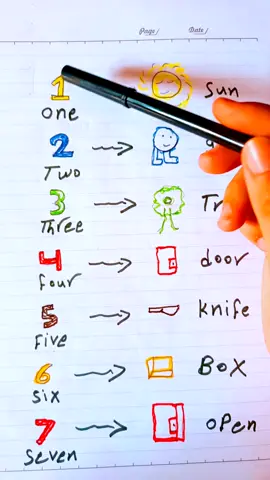 Page/ Date/
1 Sun
one
2
Two
3 Tr
Three
4 door
four
5 knife
five
6 BOX
six
7 open
seven